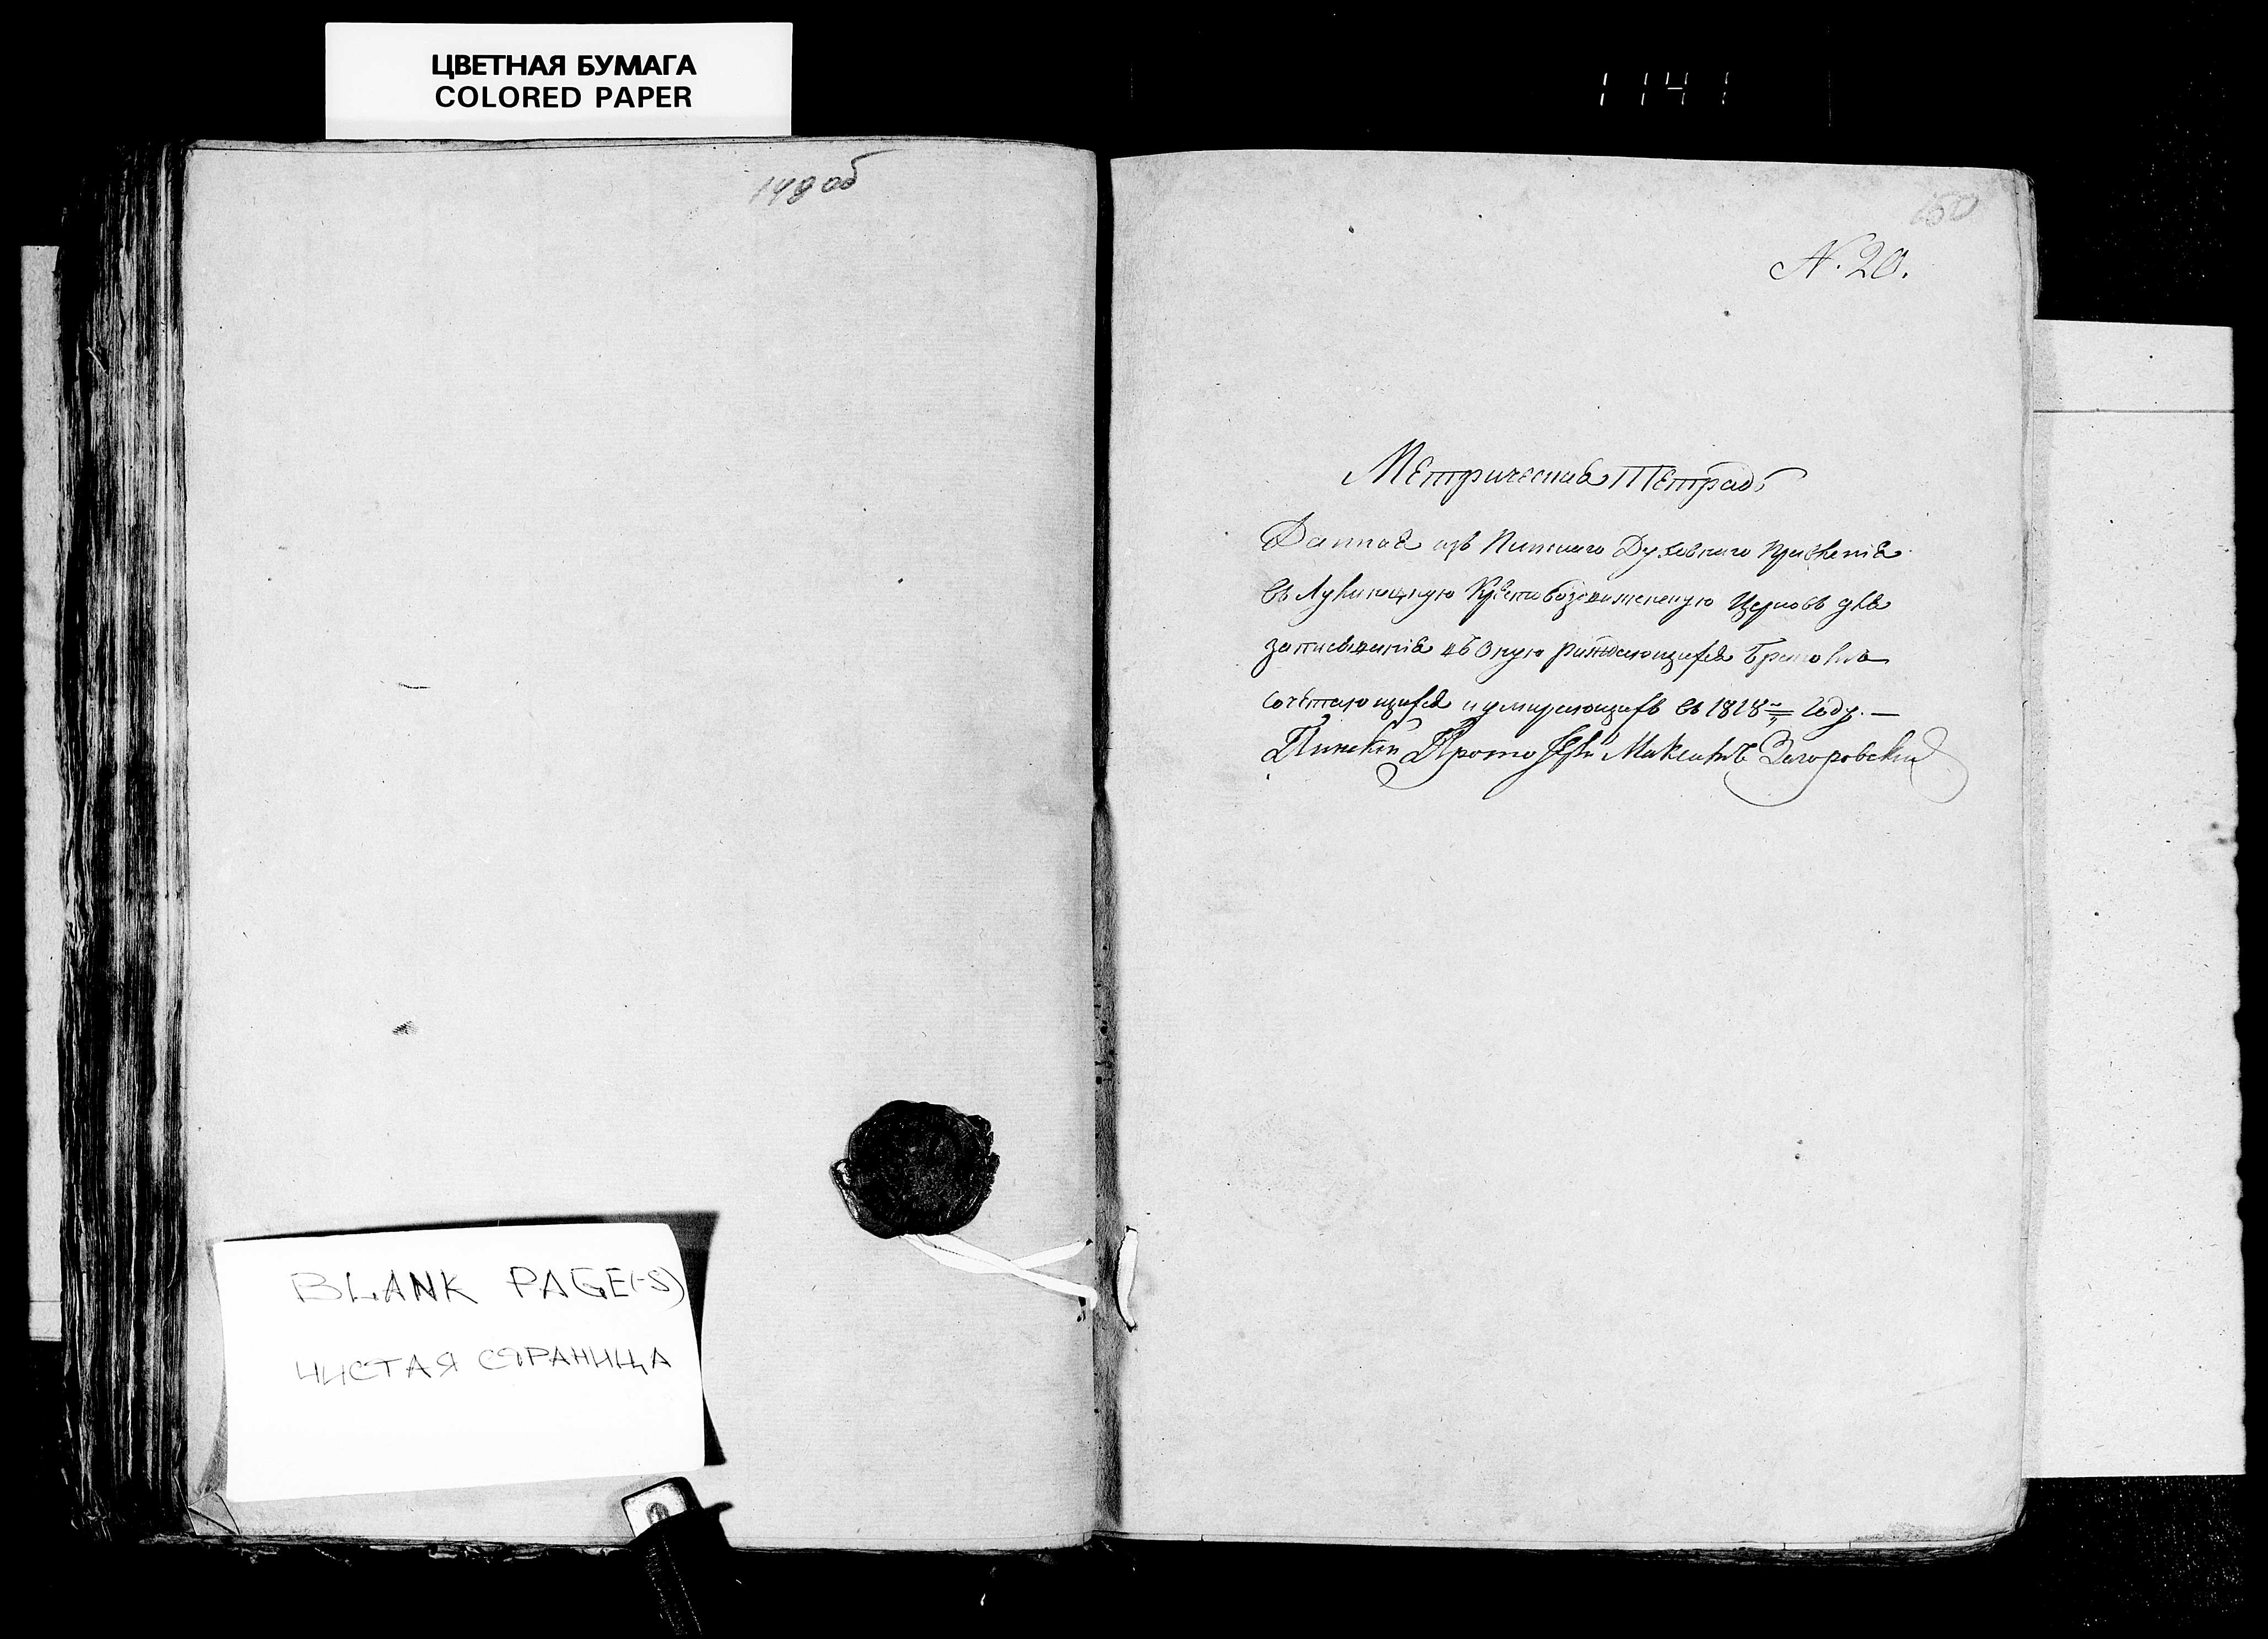 ЦВЕТНАЯ БУМАГА
COLORED PAPER
1141
149 об
150
N. 20.
Метрическая Тетрадь
Данная изъ Пинскаго Духовнаго Правленія
въ Лукицкую Крестовоздвиженскую Церковь для
записыванія въ оную раждающихся Бракомъ
сочетающихся и умирающихъ въ 1818 Году. —
Пинскій Протоіерей Максимъ Загоровскій
BLANK PAGE(-S)
ЧИСТАЯ СТРАНИЦА